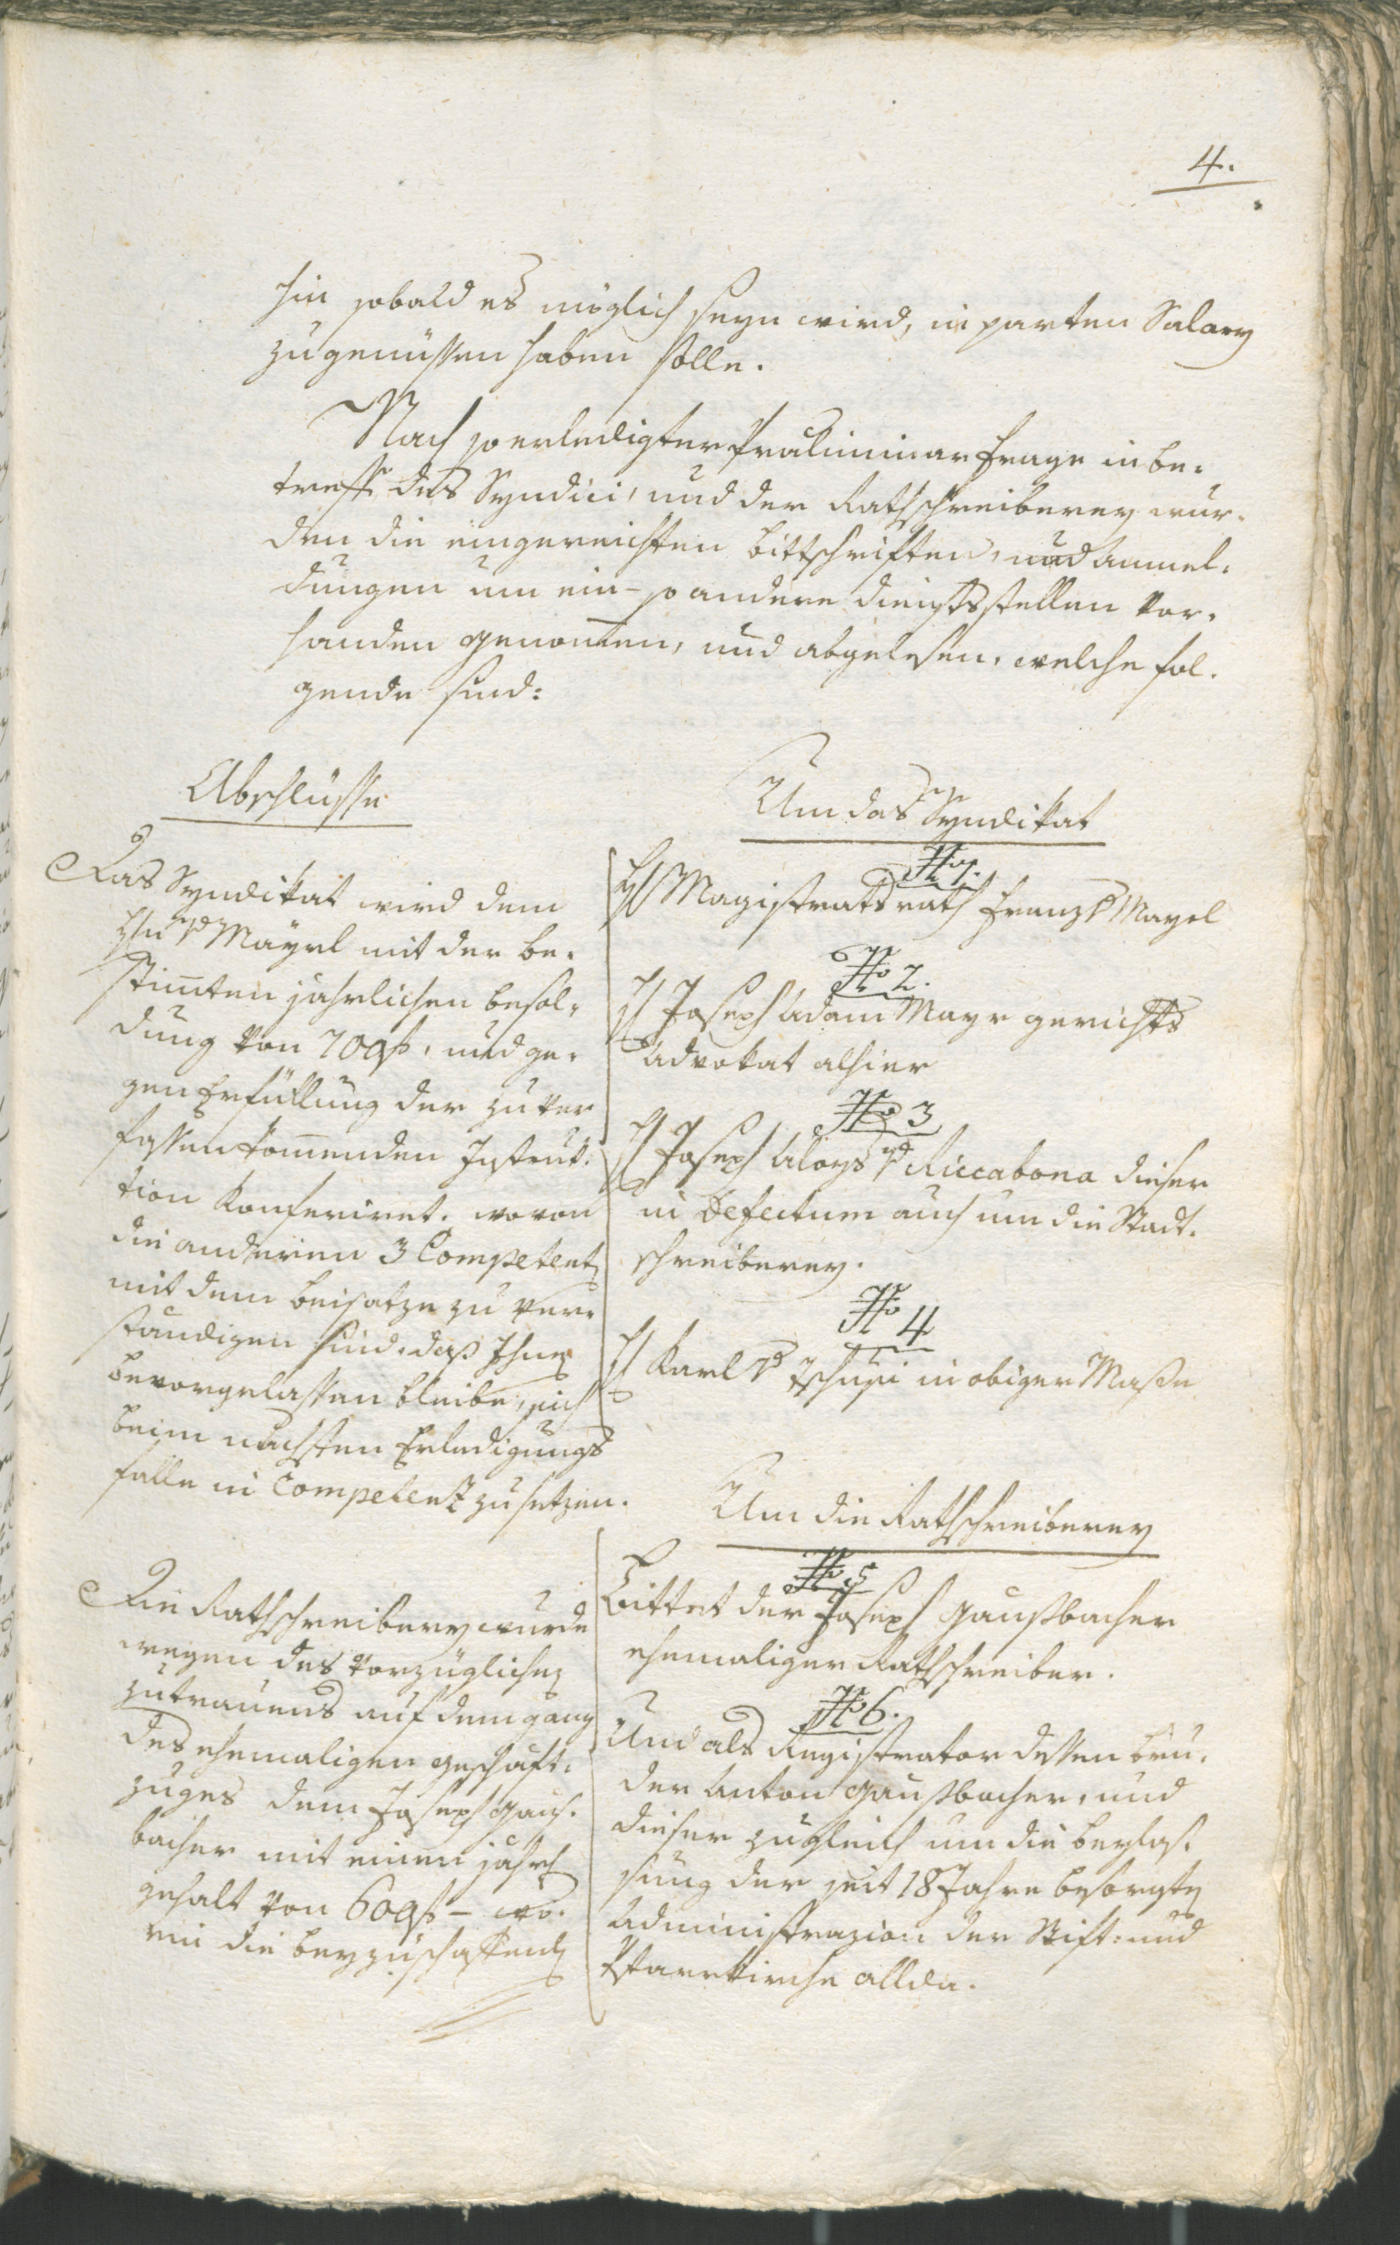 4.
hin sobald es möglich seyn wird, in parten Salary
zugenüssen haben solle.
Nach so erledigter Praeliminar Frage in be¬
treff des Syndici, und der Rathschreiberey wur¬
den die eingereichten Bittschriften, und Anmel¬
dungen um ein- so andere Dienstsstellen Vor¬
handen genomen, und abgelesen, welche fol¬
gende sind:
Abschlüsse
Das Syndikat wird dem
Hrn v Mayrl mit der be¬
stimten jahrlichen Besol¬
dung von 700 f, und ge¬
gen Erfüllung der zu ver
fassen komenden Instruk¬
tion Konferiret. wovon
die anderen 3 Competent
mit dem Beisatze zu ver¬
ständigen sind, daß Ihnen
bevorgelassen bleibe, sich
beim nächsten Erledigungs
falle in Competenz zu setzen.
Die Rathschreiberey wurde
wegen des vorzüglichen
Zutrauens auf dem gang
des ehemaligen Geschäft¬
zuges dem Joseph Gaus¬
bacher mit einem jährl
gehalt von 600 f – wo¬
rin die beyzuschaffend
Um das Syndikat
No 1.
H Magistratsrath Franz v Mayrl
No 2.
H Joseph Adam Mayr Gerichts
Advokat alhier
No 3
H Joseph Aloys v Riccabona dieser
in Defectum auch um die Stadt¬
schreiberey.
No 4
H Karl v Tschusi in obiger Maße
Um die Rathschreiberey
No 5
Bittet der Joseph Gaußbacher
ehemaliger Rathschreiber.
No 6.
Und als Registrator dessen Bru¬
der Anton Gaußbacher, und
dieser zugleich um die Beylas¬
sung der seit 18 Jahre besorgten
Administrazion der Stift- und
Pfarrkirche allda.